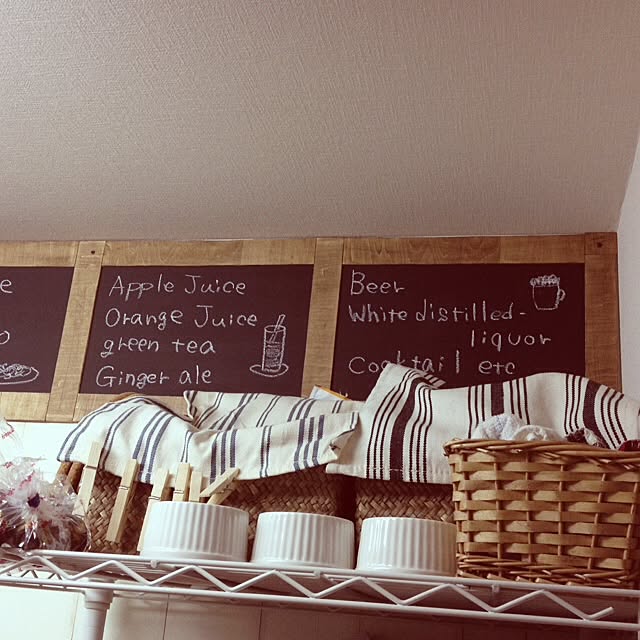 Apple Juice
Orange Juice
green tea
Ginger ale
Beer
White distilled-
liquor
Cocktail etc